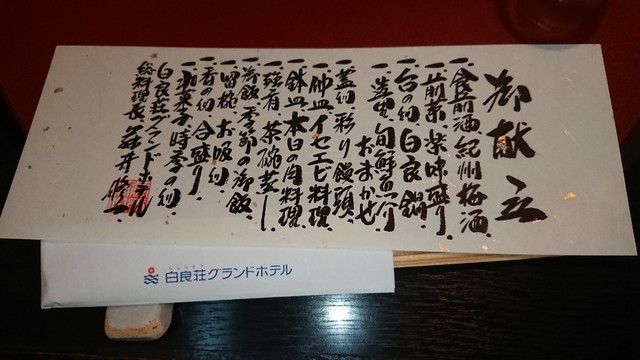 御献立
一 食前酒 紀州梅酒
一 前菜 楽味盛り
一 台の物 白良鍋
一 造里 旬鮮魚介
おまかせ
一 蓋物 彩り饅頭
一 仲皿 イセエビ料理
一 鉢皿 本日の肉料理
一 強肴 茶碗蒸し
一 御飯 季節の御飯
一 留椀 お吸物
一 香の物 合盛り
一 水菓子 時季の物
白良荘グランドホテル
総料理長
白良荘グランドホテル